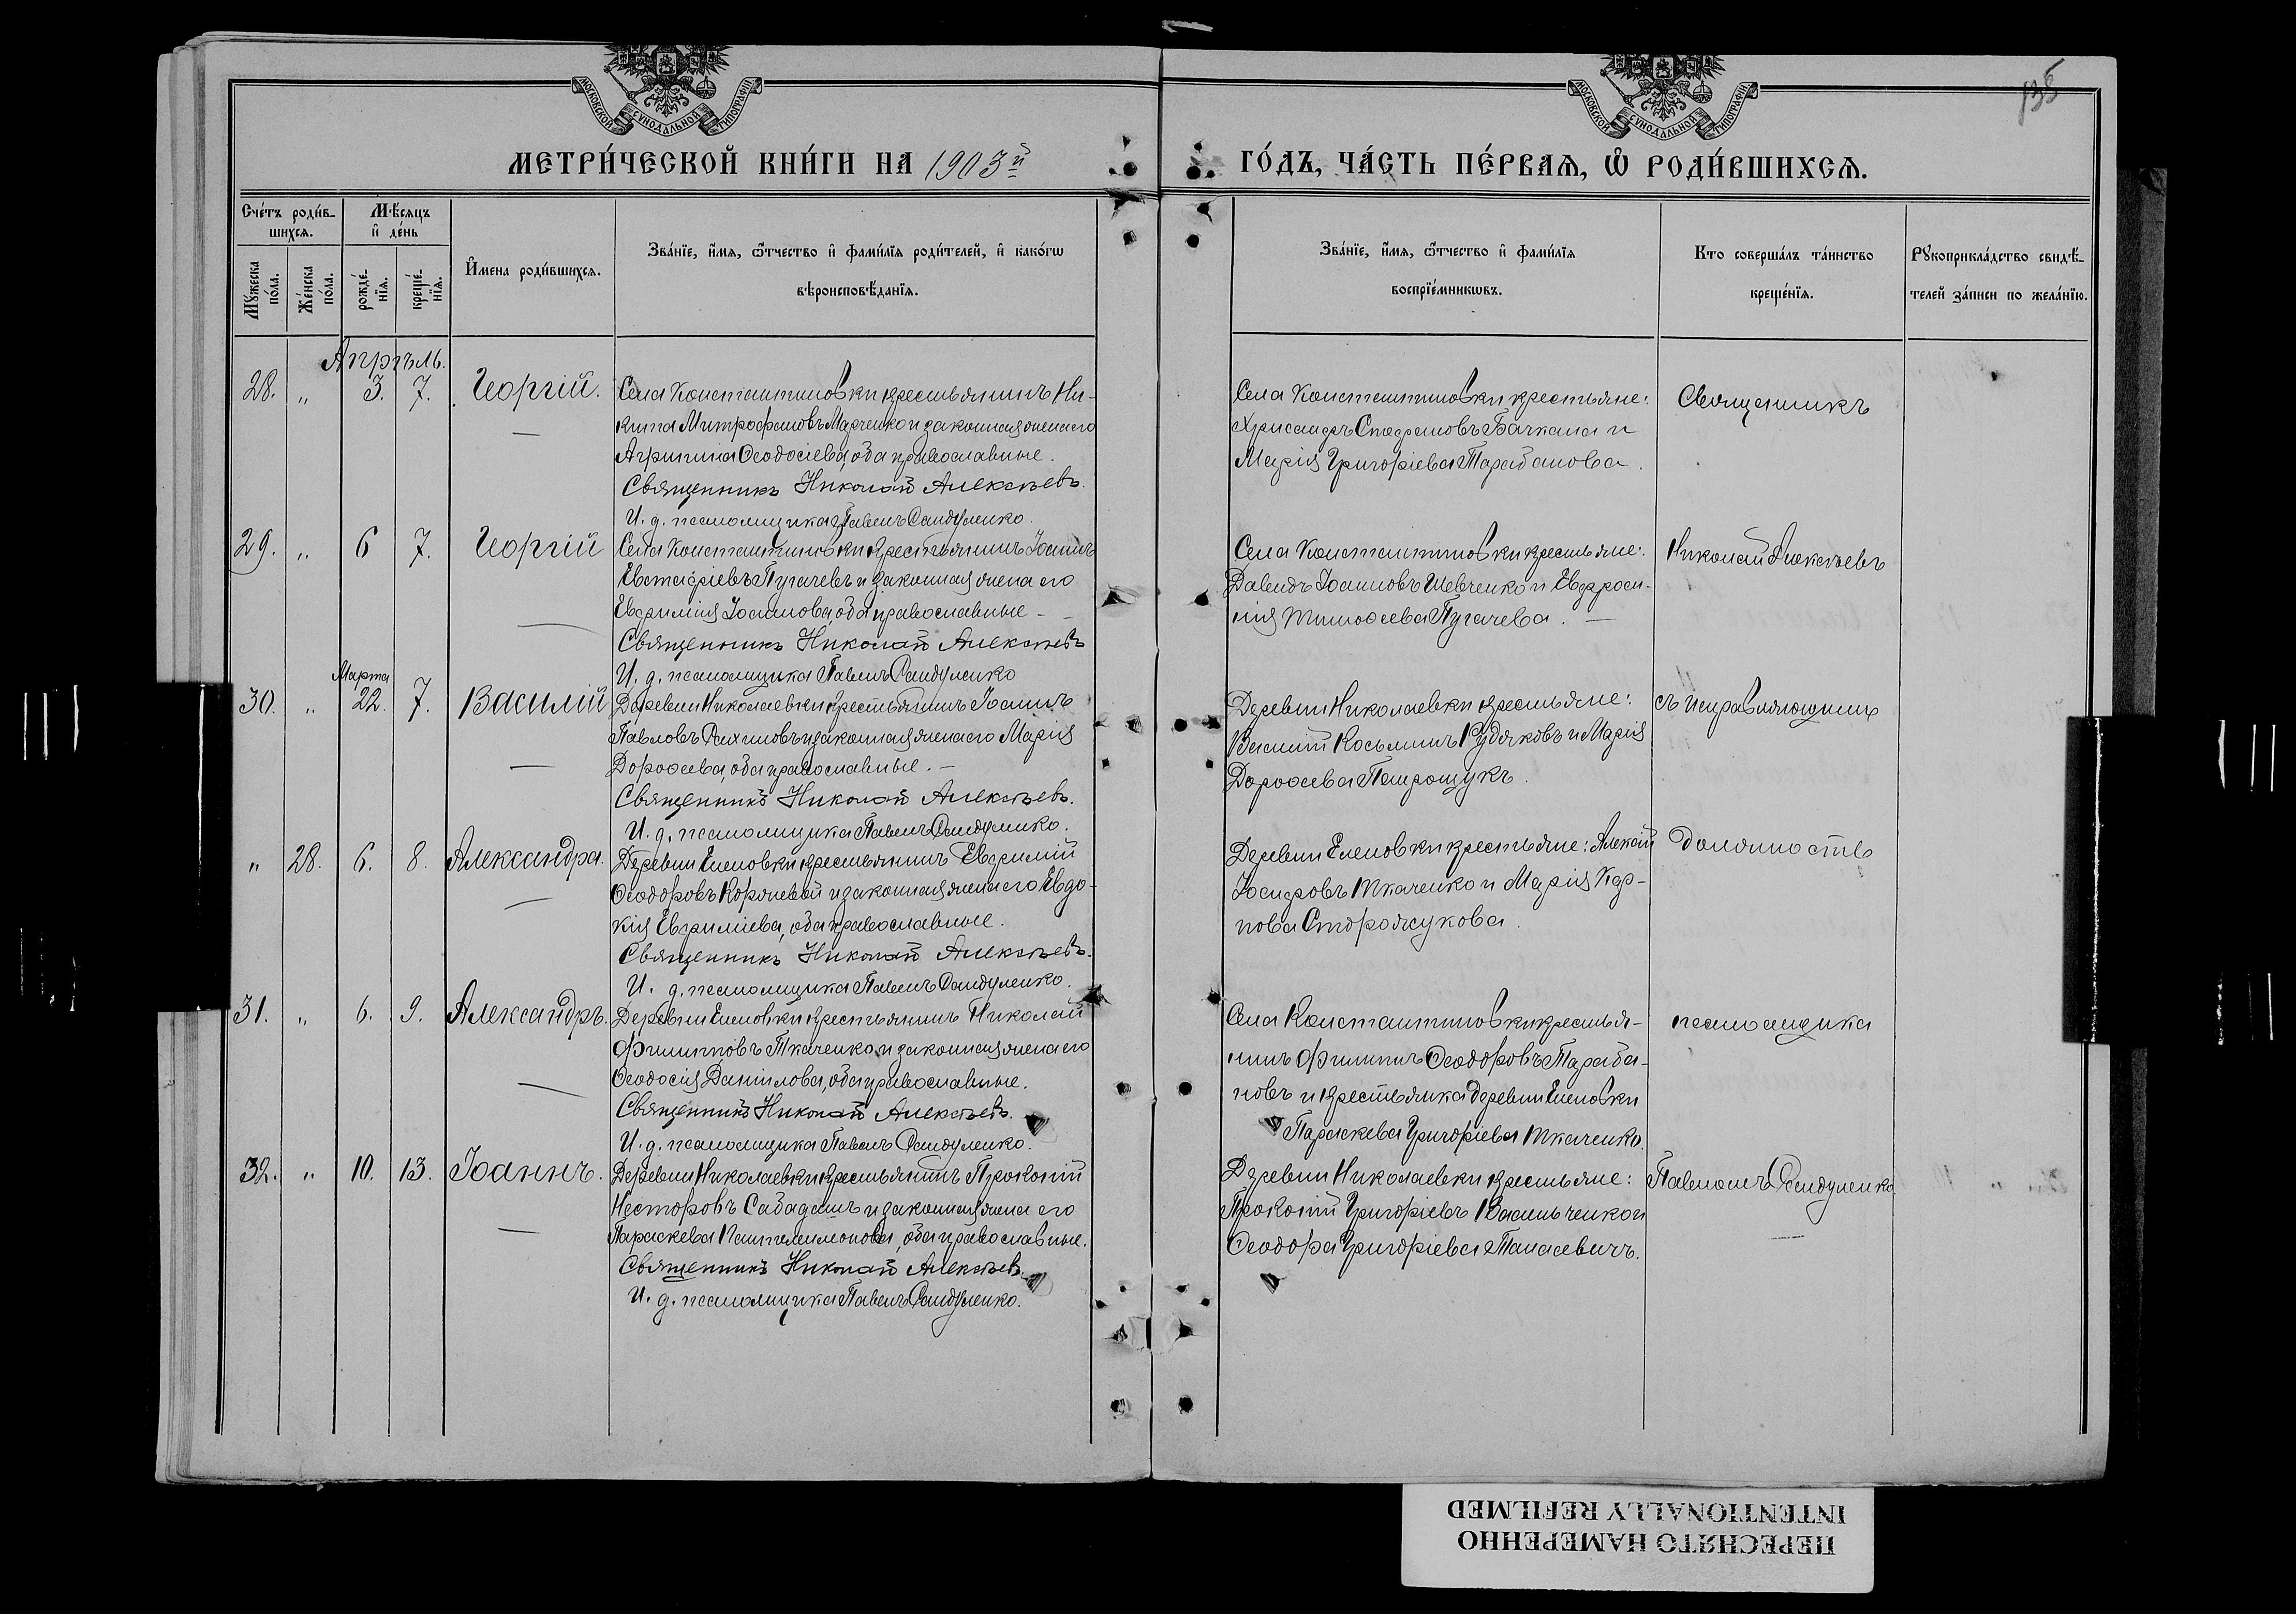 135
МОСКОВСКОЙ СѴНОДАЛЬНОЙ ТИПОГРАФІИ
МОСКОВСКОЙ СѴНОДАЛЬНОЙ ТИПОГРАФІИ
МЕТРИ́ЧЕСКОЙ КНИ́ГИ НА 1903й
ГО́ДЪ, ЧА́СТЬ ПЕ́РВАЯ, Ѿ РОДИ́ВШИХСЯ.
Сче́тъ роди́в-
шихся.
Мѣ́сяцъ
и҆ де́нь
Му́жеска по́ла.
Же́нска по́ла.
рожде́-нїя.
креще́-нїя.
И҆мена роди́вшихся.
Зва́нїе, и҆́мя, ѻ҆́тчество и҆ фами́лїя роди́телей, и҆ како́гѡ
вѣроисповѣ́данїя.
Зва́нїе, и҆́мя, ѻ҆́тчество и҆ фами́лїя
воспрїе́мникѡвъ.
Кто соверша́лъ та́инство
креще́нїя.
Рꙋкоприкла́дство свидѣ́-
телей за́писи по жела́нїю.
Апрѣль.
28. " 3. 7. Георгій.
Села Константиновки крестьянинъ Ни-
кита Митрофановъ Марченко и законная жена его
Агрипина Ѳеодосіева, оба православные.
Священникъ Николай Алексѣевъ.
И. д. псаломщика Павелъ Сандуленко.
Села Константиновки крестьяне:
Хрисанфъ Стефановъ Бачкала и
Марія Григоріева Тарабанова.
Священникъ
29. " 6 7. Георгій
Села Константиновки крестьянинъ Іоаннъ
Евстафіевъ Пугачевъ и законная жена его
Евфимія Іоаннова, оба православные -
Священникъ Николай Алексѣевъ
И. д. псаломщика Павелъ Сандуленко
Села Константиновки крестьяне:
Давидъ Іоанновъ Шевченко и Евфроси-
нія Тимоѳеева Пугачева. -
Николай Алексѣевъ
Марта
30. " 22. 7. Василій
Деревни Николаевки крестьянинъ Іоаннъ
Павловъ Рихновъ и законная жена его Марія
Дороѳеева, оба православные. -
Священникъ Николай Алексѣевъ.
И. д. псаломщика Павелъ Сандуленко.
Деревни Николаевки крестьяне:
Василій Косьминъ Кудяковъ и Марія
Дороѳеева Петрощукъ.
съ исправляющимъ
" 28. 6. 8. Александра.
Деревни Еленовки крестьянинъ Евфимій
Ѳеодоровъ Коржевой и законная жена его Евдо-
кія Евфиміева, оба православные.
Священникъ Николай Алексѣевъ.
И. д. псаломщика Павелъ Сандуленко.
Деревни Еленовки крестьяне: Алексѣй
Іосифовъ Ткаченко и Марія Кар-
пова Сторожукова.
должность
31. " 6. 9. Александръ.
Деревни Еленовки крестьянинъ Николай
Филипповъ Ткаченко и законная жена его
Ѳеодосія Даніилова, оба православные.
Священникъ Николай Алексѣевъ.
И. д. псаломщика Павелъ Сандуленко.
Села Константиновки крестья-
нинъ Филиппъ Ѳеодоровъ Тараба-
новъ и крестьянка деревни Еленовки
Параскева Григоріева Ткаченко.
псаломщика
32. " 10. 13. Іоаннъ.
Деревни Николаевки крестьянинъ Прокопій
Несторовъ Сабадашъ и законная жена его
Параскева Пантелеимонова, оба православные.
Священникъ Николай Алексѣевъ.
И. д. псаломщика Павелъ Сандуленко.
Деревни Николаевки крестьяне:
Прокопій Григоріевъ Васильченко и
Ѳеодора Григоріева Танасевичъ.
Павломъ Сандуленко.
ПЕРЕСНЯТО НАМЕРЕННО
INTENTIONALLY REFILMED